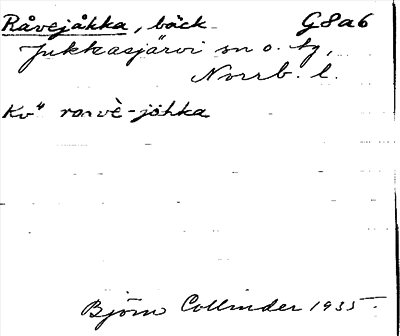 Råvejåkka, bäck G8a6
Jukkasjärvi sn o. tg,
Norrb. l.
Kv" ravvè-jåhka
Björn Collinder 1935